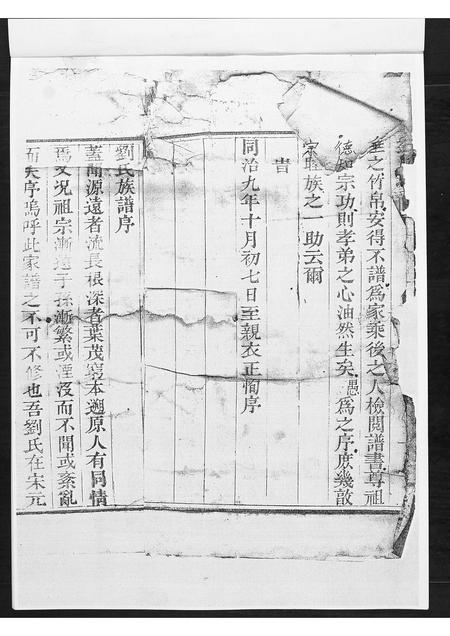 垂之竹帛安得不譜爲家乘後之人檢閱譜書尊祖
德知宗功則孝弟之心油然生矣愚爲之序庶幾敢
族之一助云爾
昔
同治九年十月初七日至親衣正恂序
劉氏族譜序
蓋聞源遠者流長根深者葉茂窮本遡原人有同情
焉又況祖宗漸遠子孫漸繁或湮沒而不聞或紊亂
而失序嗚呼此家譜之不可不修也吾劉氏在宋元